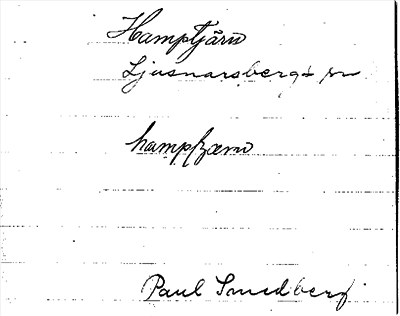 Hamptjärn
Ljusnarsbergs sn
hampʃæɳ
Paul Smedberg